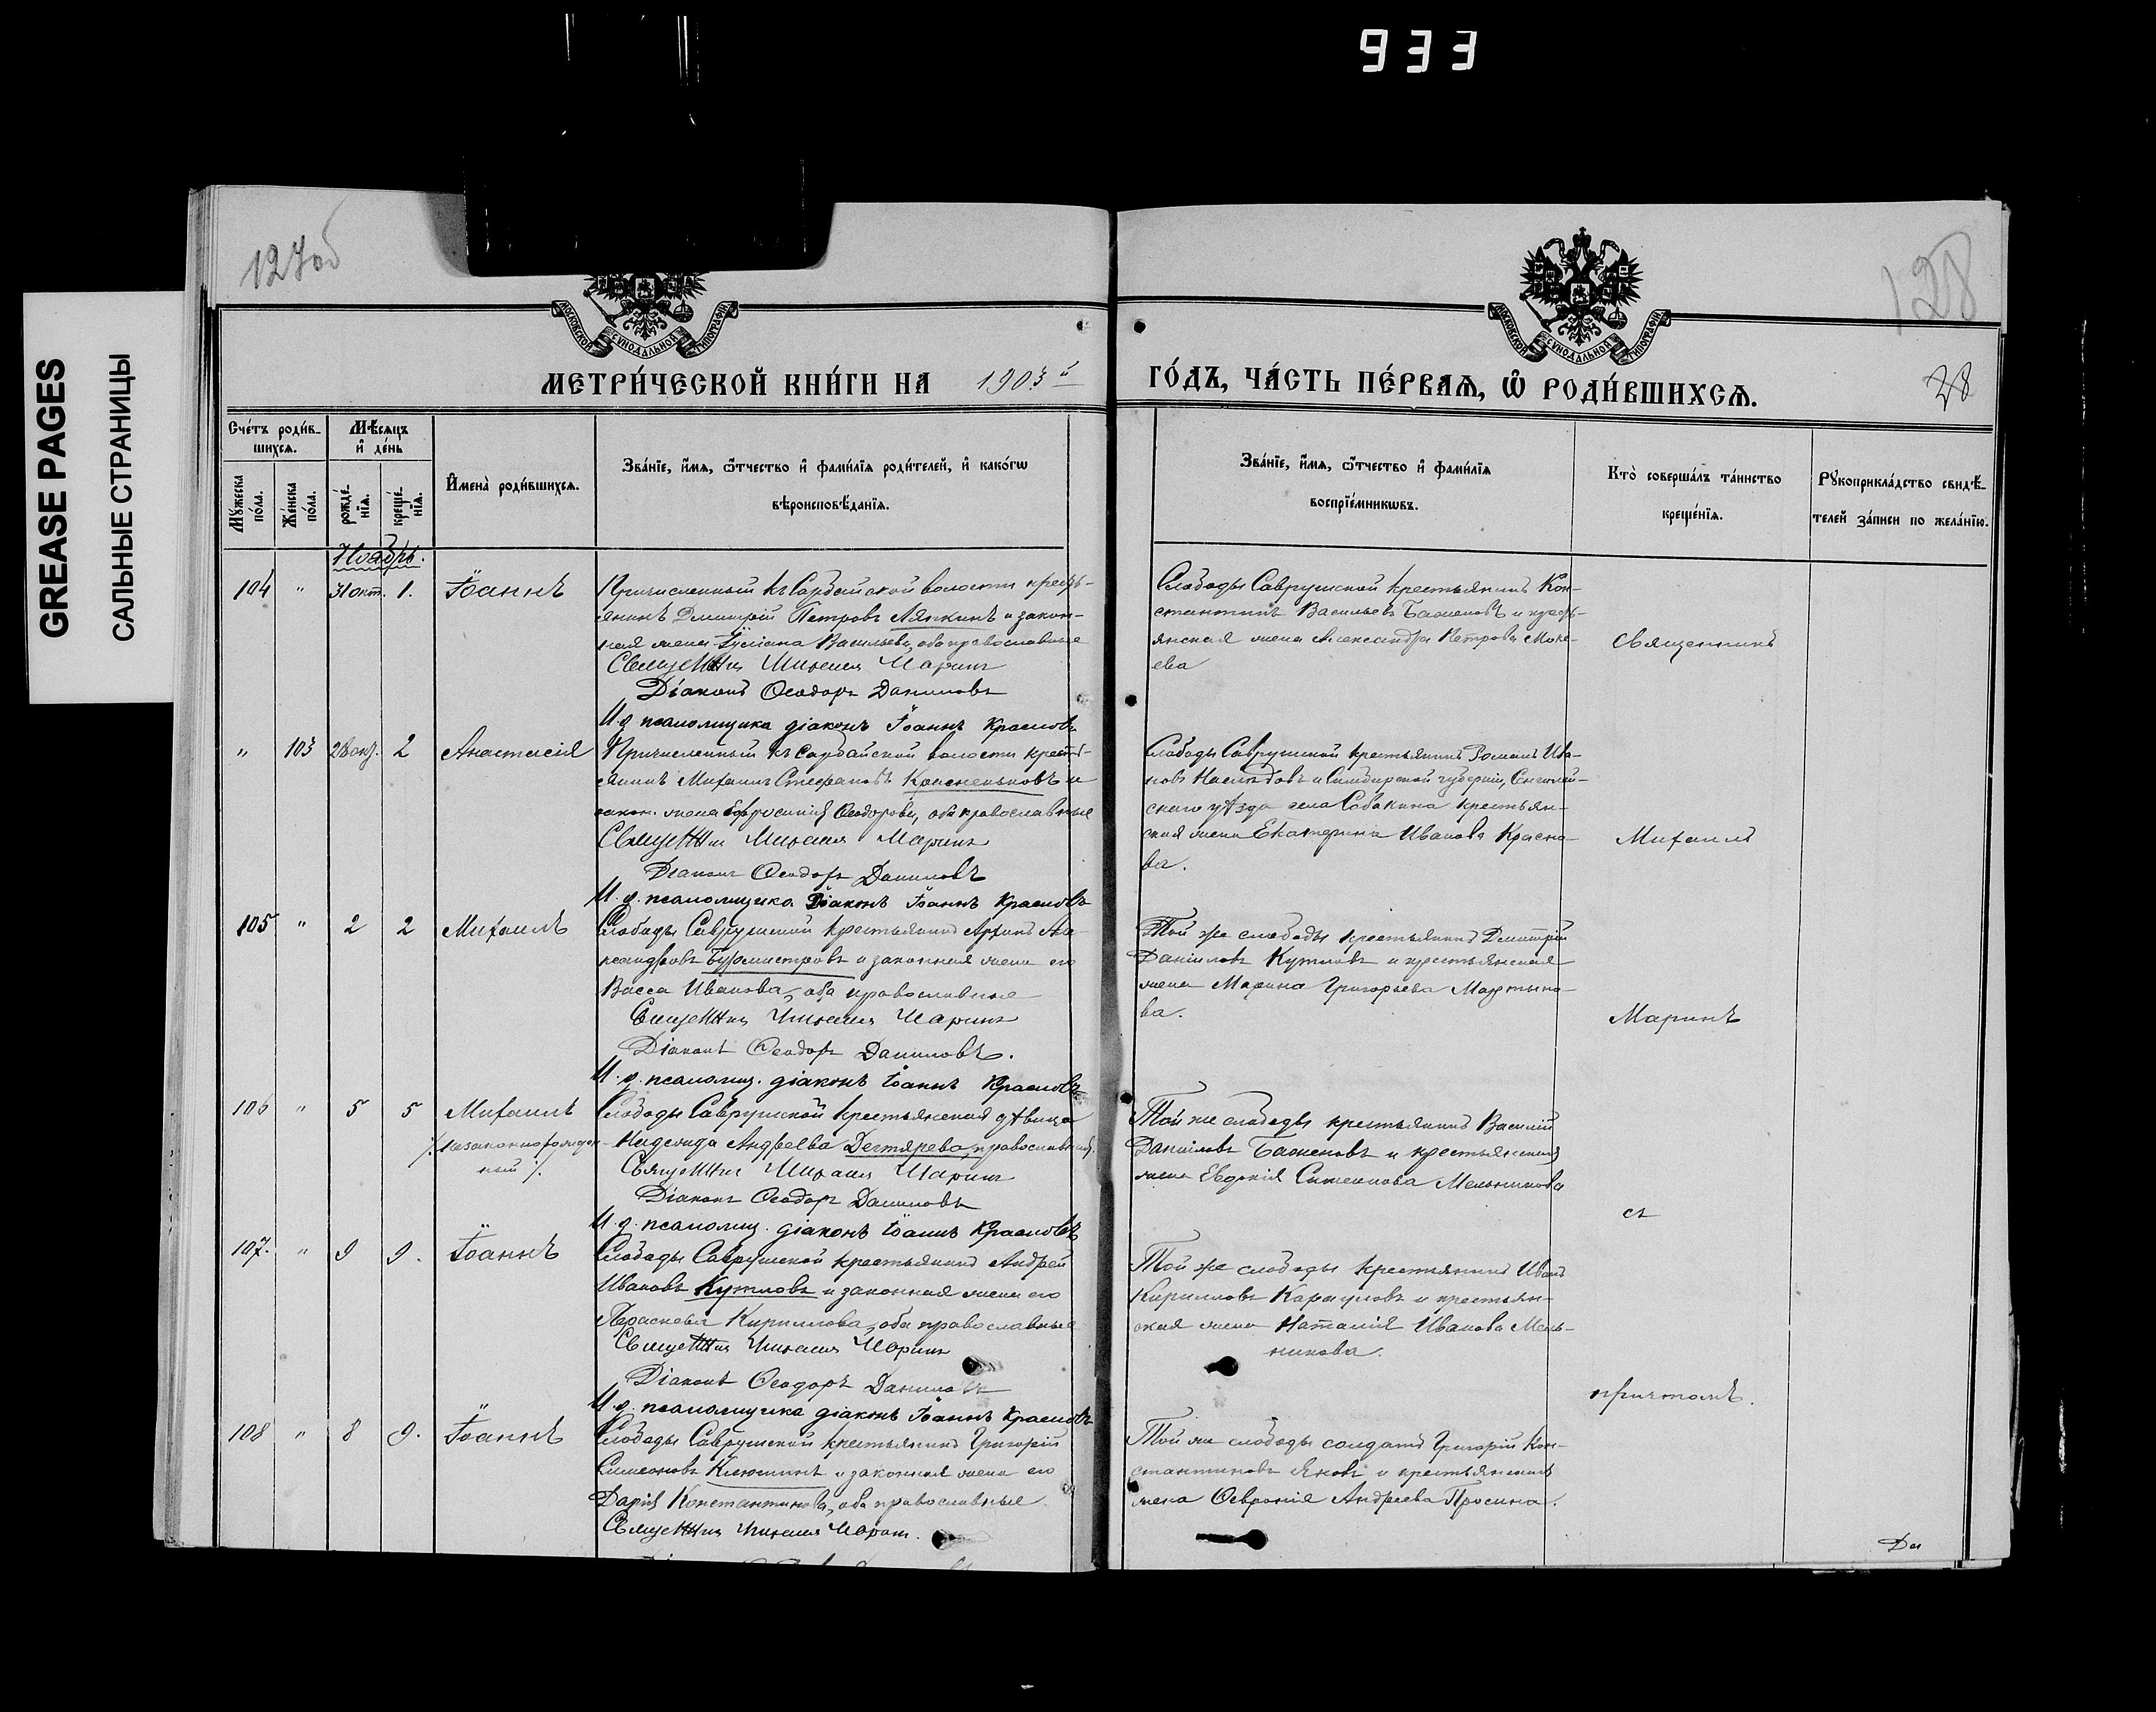 933
GREASE PAGES
САЛЬНЫЕ СТРАНИЦЫ
127об
128
МОСКОВСКОЙ СѴНОДАЛЬНОЙ ТИПОГРАФІИ
МОСКОВСКОЙ СѴНОДАЛЬНОЙ ТИПОГРАФІИ
МЕТРИ́ЧЕСКОЙ КНИ́ГИ НА 1903й
ГО́ДЪ, ЧА́СТЬ ПЕ́РВАѦ, Ѡ҆ РОДИ́ВШИХСѦ.
28
Сче́тъ роди́в-
шихсѧ.
Мѣ́сѧцъ
и҆ де́нь
Мꙋ́жеска
по́ла.
Же́нска
по́ла.
рожде́-
нїѧ.
креще́-
нїѧ.
И҆мена̀ роди́вшихсѧ.
Зва́нїе, и҆́мѧ, ѻ҆́тчество и҆ фамı́лїѧ роди́телей, и҆ како́гѡ
вѣроисповѣ́данїѧ.
Зва́нїе, и҆́мѧ, ѻ҆́тчество и҆ фамı́лїѧ
воспрїе́мникѡвъ.
Кто̀ соверша́лъ та́инство
креще́нїѧ.
Рꙋкоприкла́дство свидѣ́-
телей за́писи по жела́нїю.
Ноябрь.
104 " 31 окт. 1. Іоаннъ
Причисленный къ Сарбайской волости кресть-
янинъ Димитрій Петровъ Ляпкинъ и закон-
ная жена Іуліана Васильева, оба православные
Священникъ Михаилъ Маринъ
Діаконъ Ѳеодоръ Даниловъ
И. д. псаломщика діаконъ Іоаннъ Красновъ
Слободы Саврушской крестьянинъ Кон-
стантинъ Васильевъ Баженовъ и кресть-
янская жена Александра Петрова Моке-
ева
Священникъ
" 103 28 окт. 2 Анастасія
Причисленный къ Сарбайской волости кресть-
янинъ Михаилъ Стефановъ Красненьковъ и
закон. жена Евфросинія Ѳеодорова, оба православные
Священникъ Михаилъ Маринъ
Діаконъ Ѳеодоръ Даниловъ
И. д. псаломщика Діаконъ Іоаннъ Красновъ
Слободы Саврушской крестьянинъ Романъ Ива-
новъ Наслѣдовъ и Симбирской губерніи, Сенгилей-
скаго уѣзда села Собакина крестьян-
ская жена Екатерина Иванова Красно-
ва.
Михаилъ
105 " 2 2 Михаилъ
Слободы Саврушской крестьянинъ Архипъ Але-
ксандровъ Бурмистровъ и законная жена его
Васса Иванова, оба православные
Священникъ Михаилъ Маринъ
Діаконъ Ѳеодоръ Даниловъ.
И. д. псаломщ. діаконъ Іоаннъ Красновъ
Той же слободы крестьянинъ Димитрій
Даніиловъ Кутловъ и крестьянская
жена Марина Григорьева Мартыно-
ва.
Маринъ
106 " 5 5 Михаилъ
/незаконнорожден-
ный/.
Слободы Саврушской крестьянская дѣвица
Надежда Андреева Дегтярева, православная.
Священникъ Михаилъ Маринъ
Діаконъ Ѳеодоръ Даниловъ
И. д. псаломщ. діаконъ Іоаннъ Красновъ
Той же слободы крестьянинъ Василій
Даніиловъ Баженовъ и крестьянская
жена Евдокія Симеонова Мельникова
съ
107. " 9 9. Іоаннъ
Слободы Саврушской крестьянинъ Андрей
Ивановъ Кутловъ и законная жена его
Параскева Кириллова, оба православные
Священникъ Михаилъ Маринъ
Діаконъ Ѳеодоръ Даниловъ
И. д. псаломщика діаконъ Іоаннъ Красновъ
Той же слободы крестьянинъ Иванъ
Кирилловъ Карауловъ и крестьян-
ская жена Наталія Иванова Мель-
никова.
причтомъ.
108 " 8 9. Іоаннъ
Слободы Саврушской крестьянинъ Григорій
Симеоновъ Клюшинъ и законная жена его
Дарія Константинова, оба православные.
Священникъ Михаилъ Маринъ.
Той же слободы солдатъ Григорій Кон-
стантиновъ Яновъ и крестьянская
жена Ѳевронія Андреева Просина.